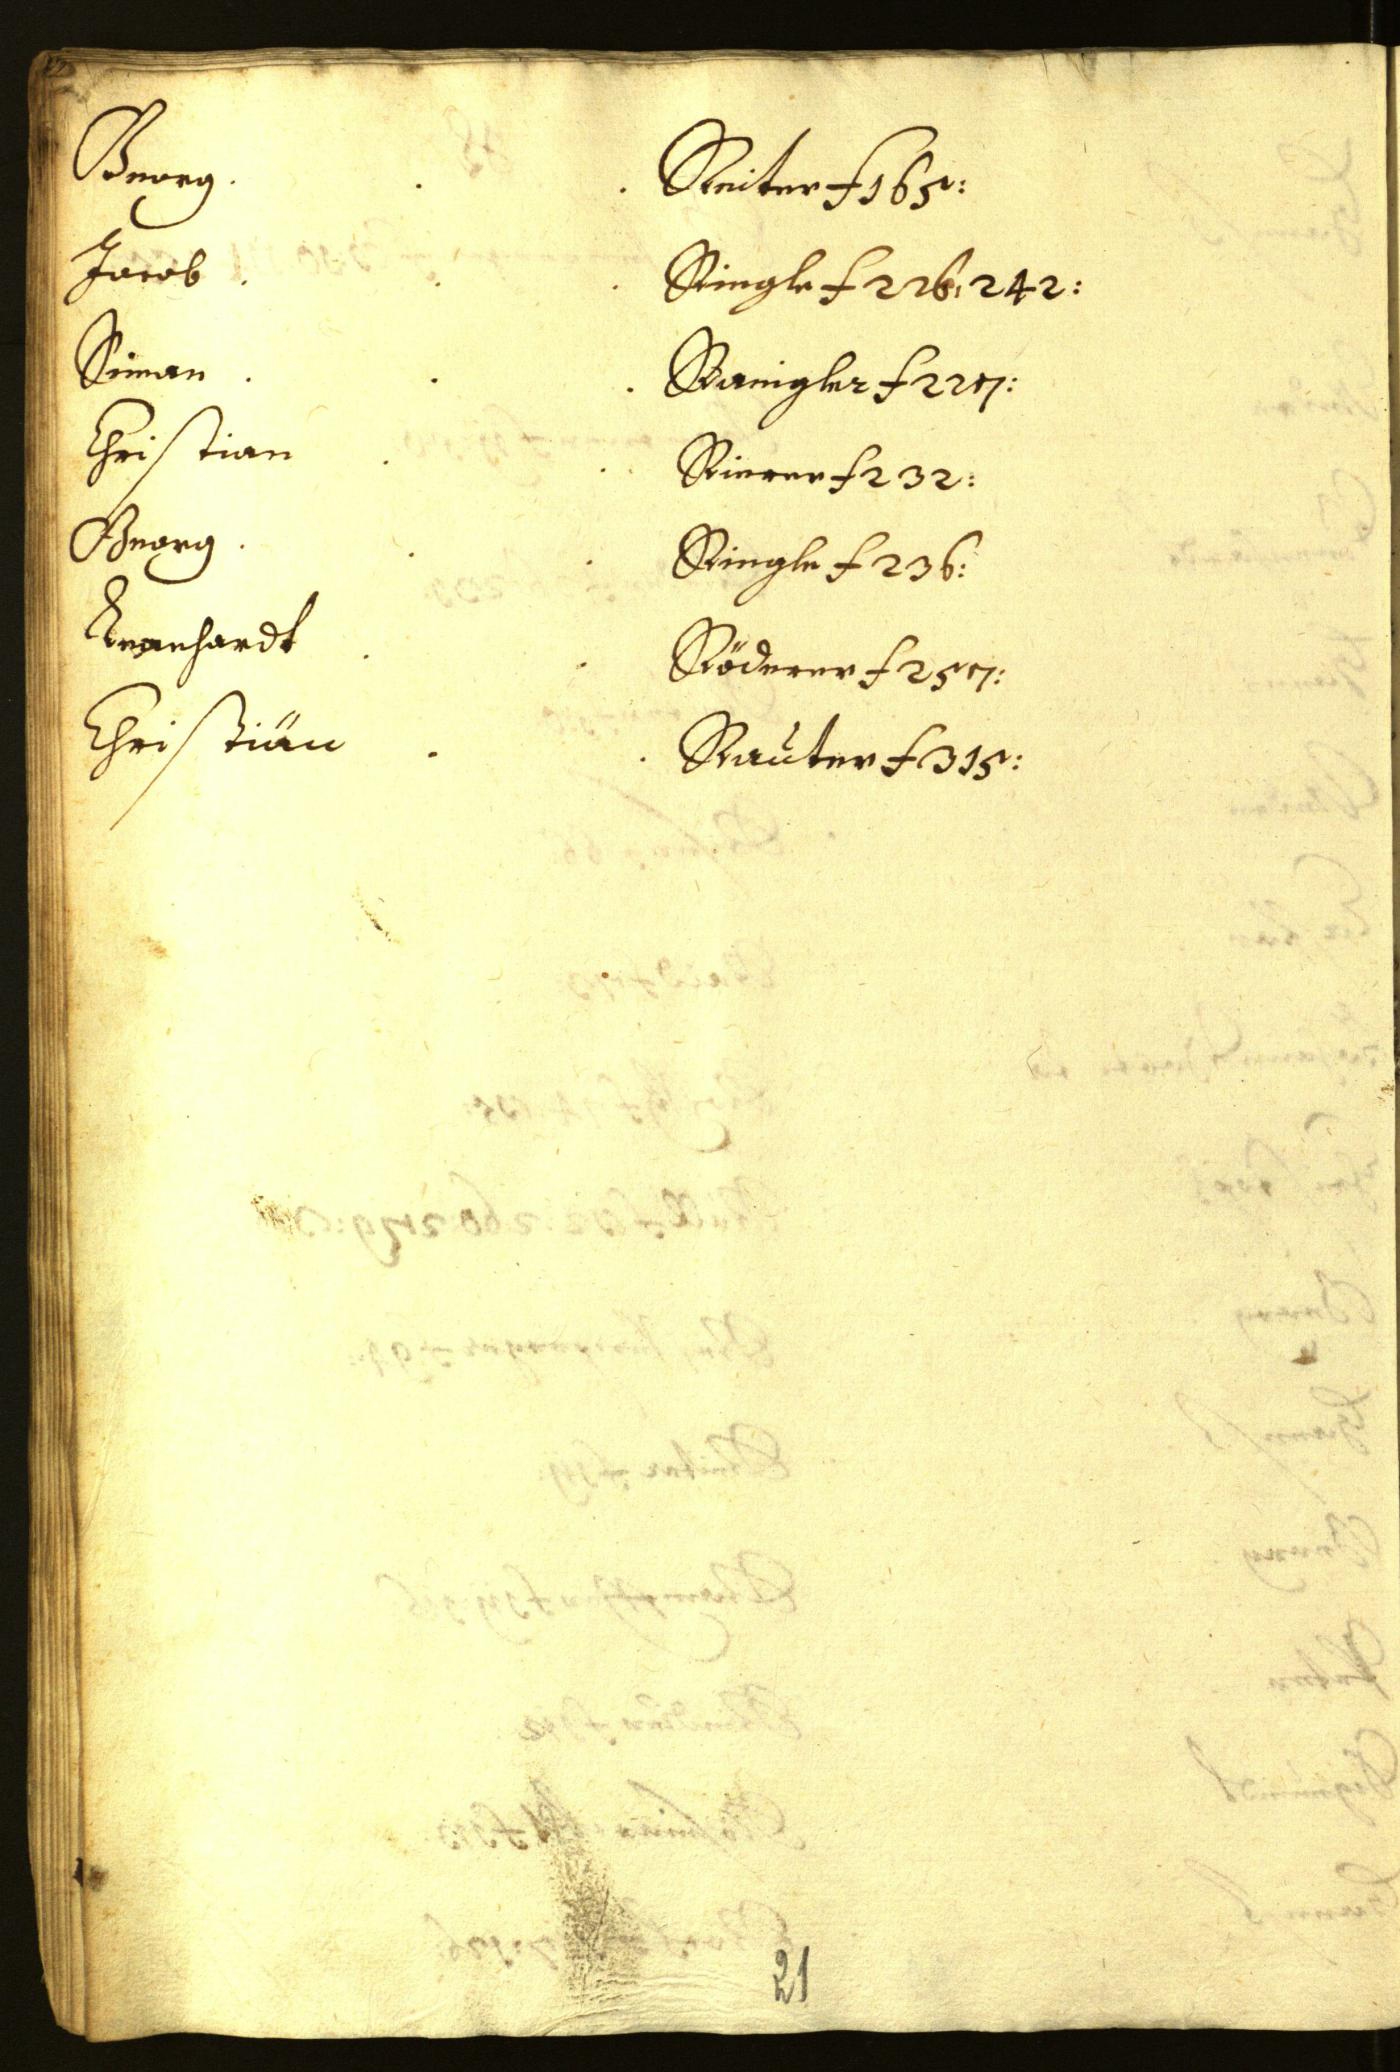 Georg . . . Reiter f 165:
Jacob . . . Ringle f 226: 242:
Siman . . . Rainigler f 227:
Christian . . . Rierer f 232:
Georg . . . Ringle f 236:
Leonhardt . . . Röderer f 257:
Christian . . . Rauter f 315:
21